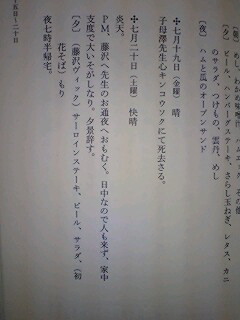 〔夕〕 ビール、ハンバーグステーキ、さらし玉ねぎ、レタス、カニ
のサラダ、つけもの、雲丹、めし
〔夜〕 ハムと瓜のオープンサンド
✣七月十九日（金曜）晴
子母澤先生心キンコウソクにて死去さる。
✣七月二十日（土曜）快晴
炎天。
ＰＭ、藤沢へ先生のお通夜へおもむく。日中なので人も来ず、家中
支度で大いそがしなり。夕景辞す。
〔夕〕（藤沢ヴィック）サーロインステーキ、ビール、サラダ、（初
花そば）もり
夜七時半帰宅。
五日－二十日